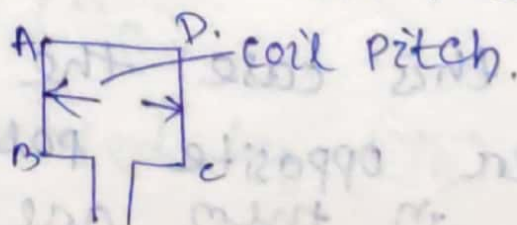 A D.
coil pitch.
B C